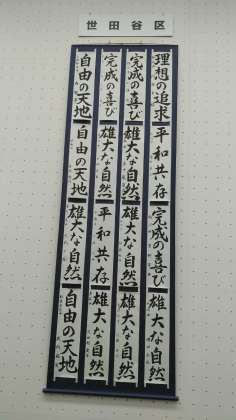 世田谷区
理想の追求
平和共存
完成の喜び
雄大な自然
完成の喜び
雄大な自然
雄大な自然
雄大な自然
完成の喜び
雄大な自然
平和共存
雄大な自然
自由の天地
自由の天地
雄大な自然
自由の天地